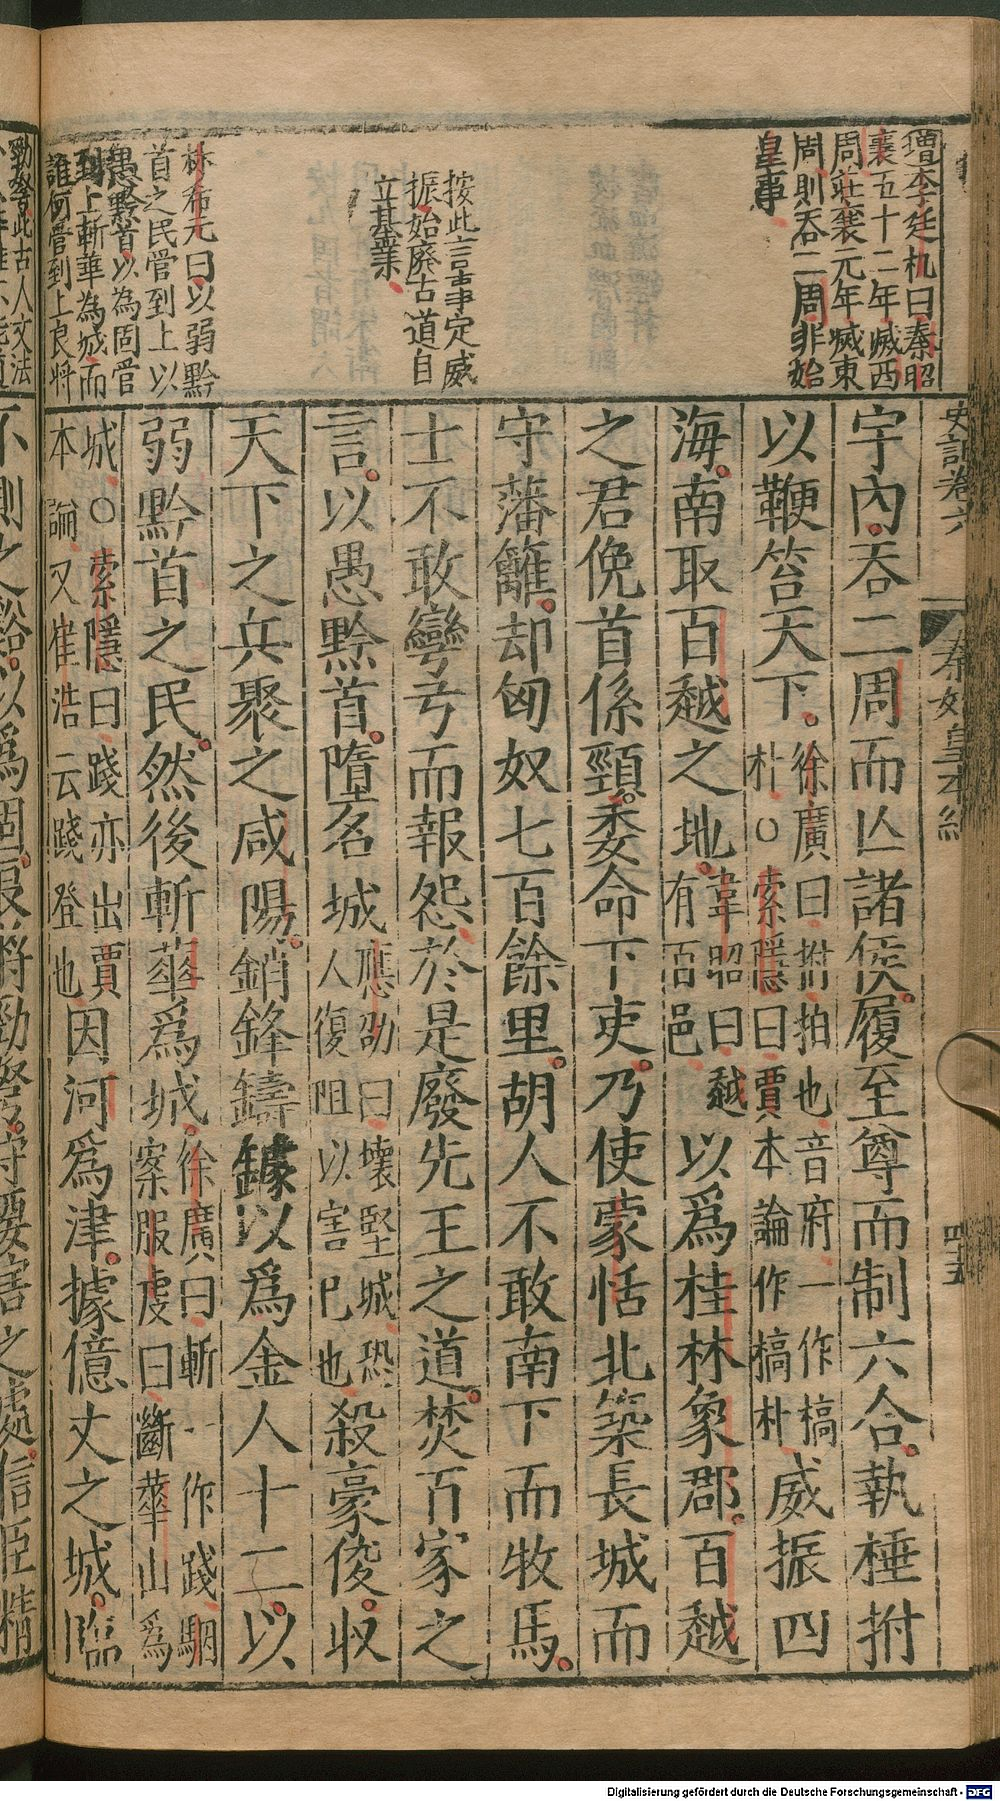 增李廷机曰秦昭
襄五十二年滅西
周莊襄元年滅東
周則吞二周非始
皇事
按此言事定威
振始廢古道自
立基業
林希元曰以弱黔
首之民管到上以
愚黔首以為固管
到上斬華為城而
誰何管到上良將
史記卷六
秦始皇本紀
四十五
宇內吞二周而亾諸侯履至尊而制六合執棰拊
以鞭笞天下徐廣曰拊拍也音府一作槁
朴○索隱曰賈本論作槁朴威振四
海南取百越之地韋昭曰越
有百邑以爲桂林象郡百越
之君俛首係頸委命下吏乃使蒙恬北築長城而
守藩籬却匈奴七百餘里胡人不敢南下而牧馬
士不敢彎弓而報怨於是廢先王之道焚百家之
言以愚黔首墮名城應劭曰壞堅城恐
人復阻以害已也殺豪俊收
天下之兵聚之咸陽銷鋒鑄鐻以爲金人十二以
弱黔首之民然後斬華爲城徐廣曰斬一作踐駰
案服虔曰斷華山爲
城○索隱曰踐亦出賈
本論又崔浩云踐登也因河爲津據億丈之城臨
勁弩此古人文法
不測之谿以爲固良將勁弩守要害之處信臣精
Digitalisierung gefördert durch die Deutsche Forschungsgemeinschaft - DFG